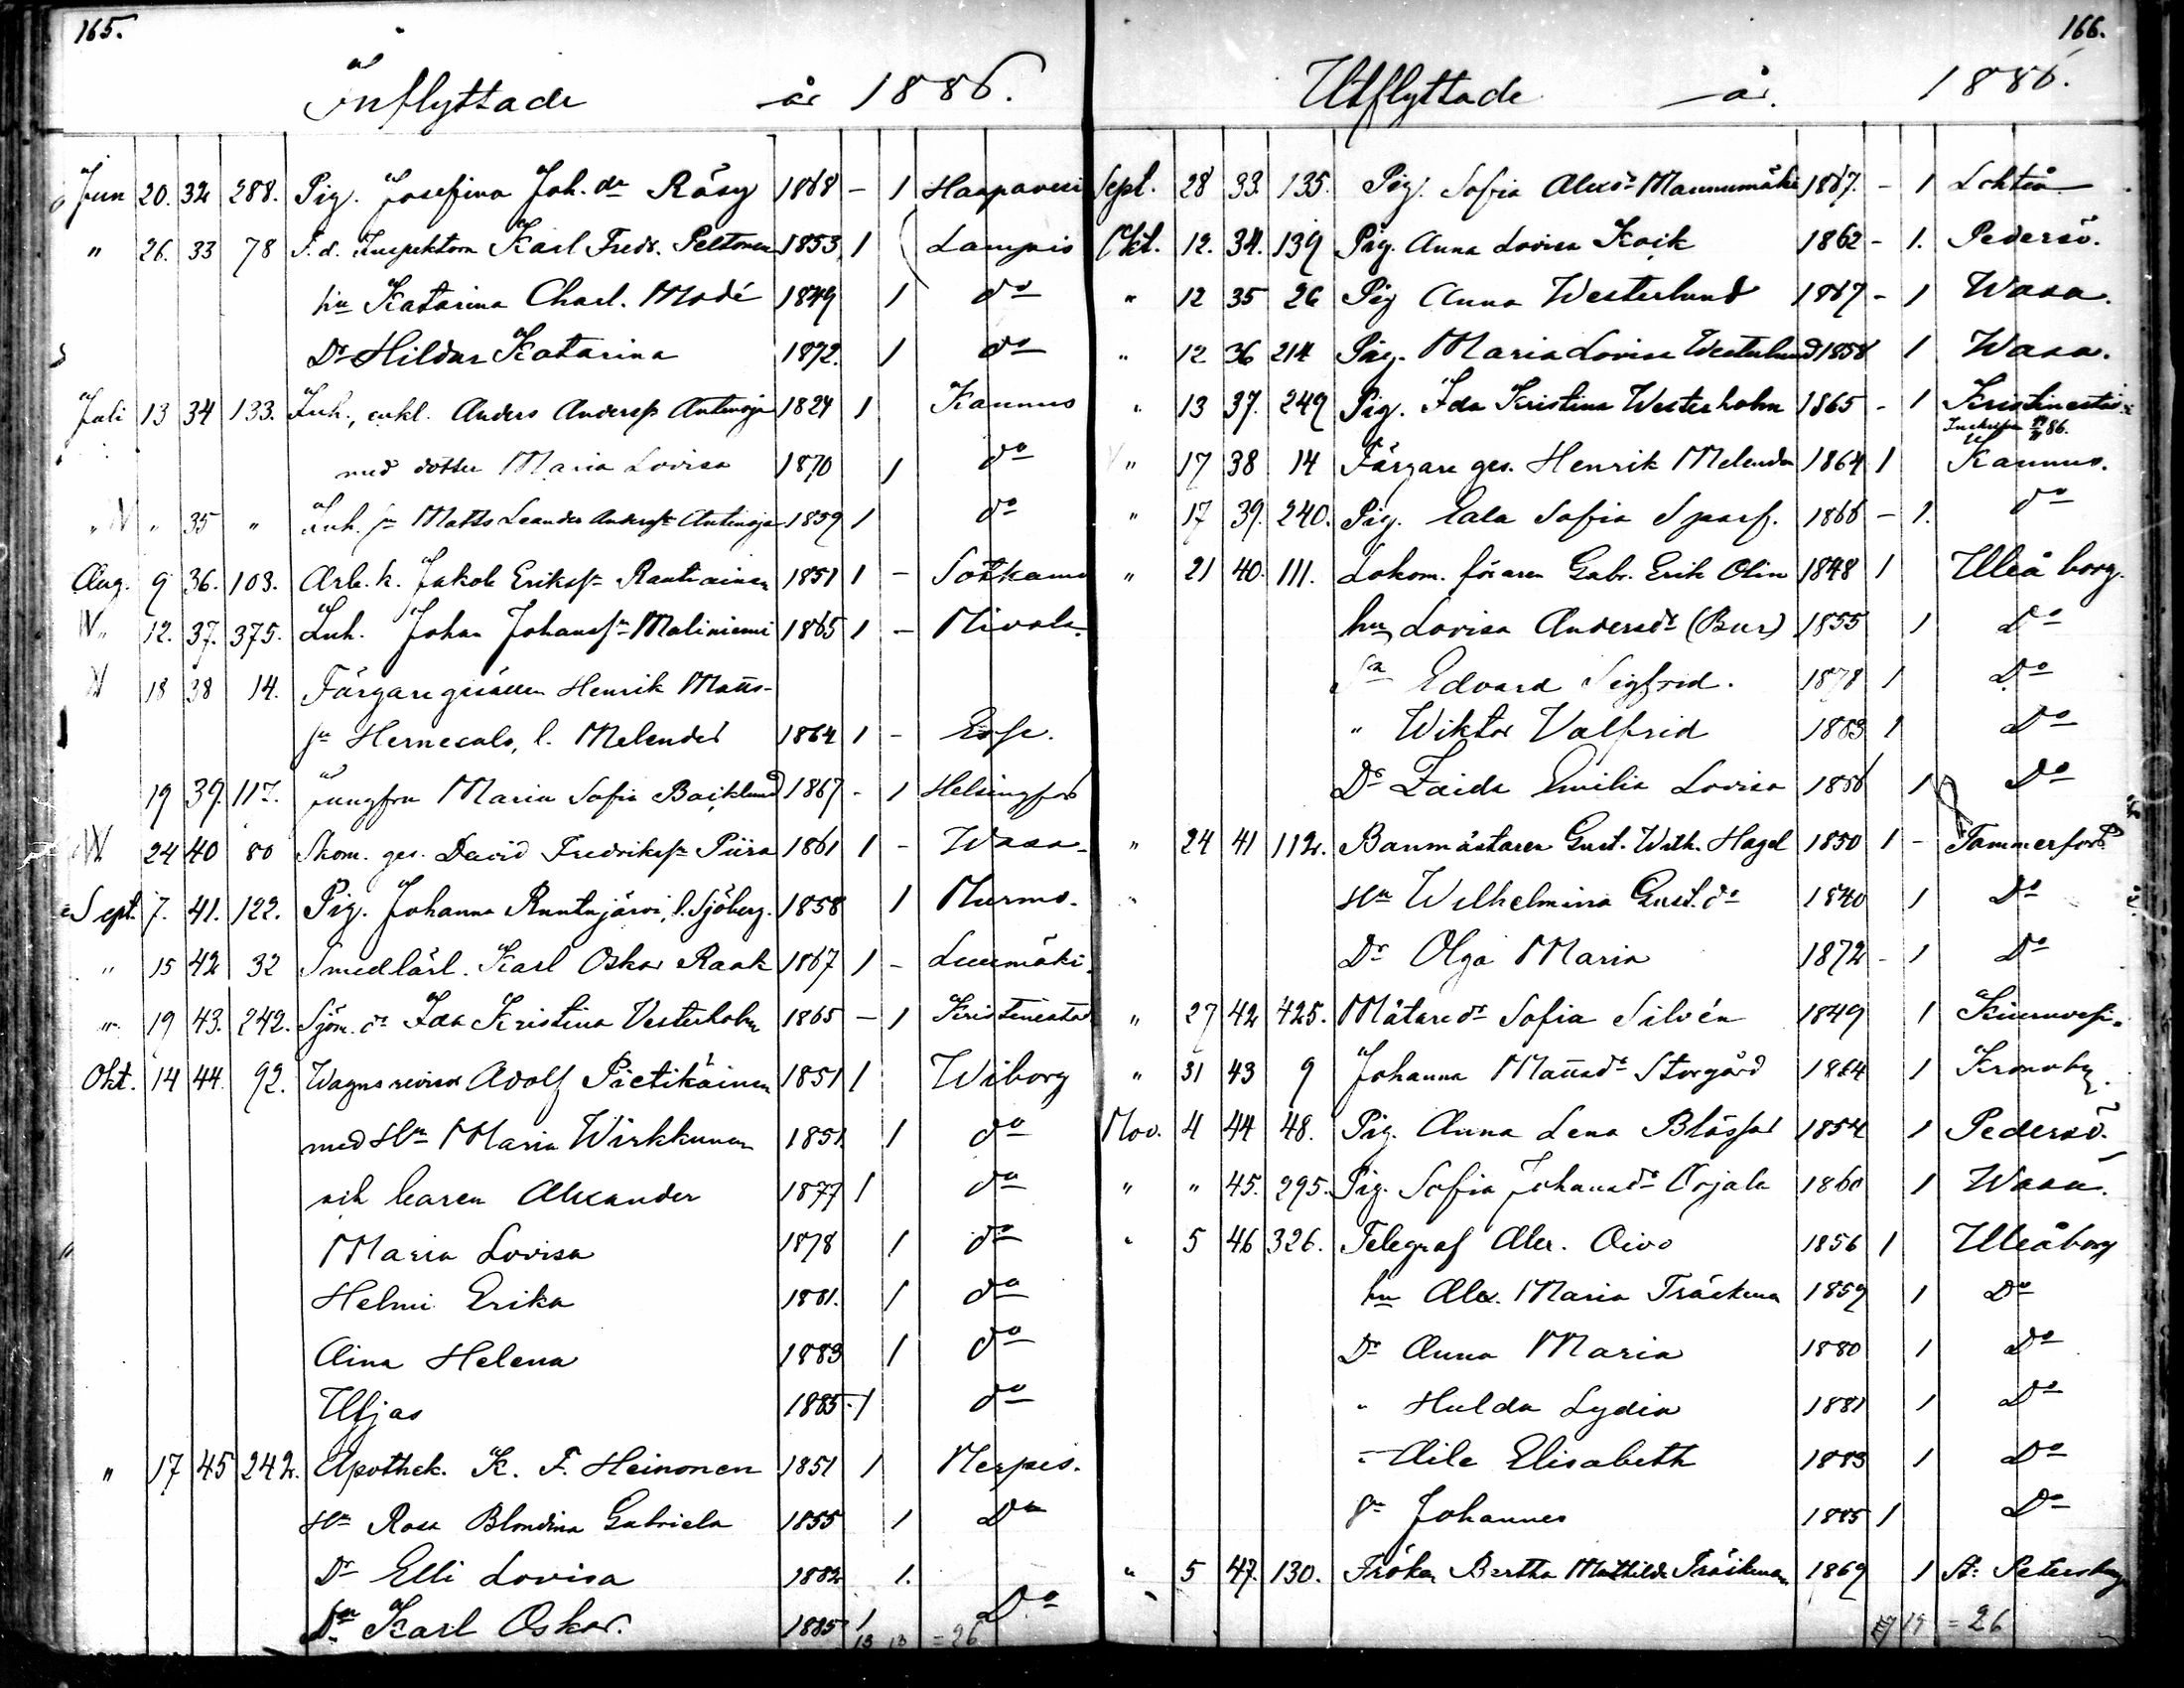 165.
Inflyttade år 1886.
Jun 20. 32 288. Pig. Josefina Joh. dr Räsy 1868 - 1 Haapavesi
" 26. 33 78 F. d. Inspektorn Karl Fredr. Peltonen 1853 1 Lampis
hu Katarina Charl. Modé 1849 1 do
Dr Hildur Katarina 1872. 1 do
Juli 13 34 133. Inh., enkl. Anders Anderss Antinoja 1824 1 Kannus
med dotter Maria Lovisa 1870 1 do
" N " 35 " Inh. sn Matts Leander Anderss Antinoja 1859 1 do
Aug. 9 36. 103. Arb. k. Jakob Erikssn Rautiainen 1851 1 - Sotkamo
N " 12. 37. 375. Inh. Johan Johanssn Maliniemi 1865 1 - Nivala.
N 18 38 14. Färgare gesällen Henrik Matts-
sn Hernesalo, l. Melender 1864 1 - Esse.
19 39. 117. Jungfru Maria Sofia Backlund 1867 - 1 Helsingfors
N 24 40 80 Skom. ges. David Fredrikssn Piira 1861 1 - Wasa
Sept. 7. 41. 122. Pig. Johanna Runtujärvi, l. Sjöberg. 1858 1 Murmo.
" 15 42 32 Smedlärl. Karl Oskar Raak 1867 1 - Luumäki.
" 19 43. 242. Sjöm. dr Ida Kristina Vesterholm 1865 - 1 Kristinestad
Okt. 14 44. 92. Wagnsrevisor Adolf Pietikäinen 1851 1 Wiborg
med Hu Maria Wirkkunen 1851. 1 do
och barnen Alexander 1877 1 do
Maria Lovisa 1878 1 do
Helmi Erika 1881. 1 do
Aina Helena 1883 1 do
Uljas 1885 - 1 do
" 17 45 242. Apothek. K. F. Heinonen 1851 1 Nerpes.
Hu Rosa Blondina Gabriela 1855 1 Do
Dr Elli Lovisa 1882 1.
Sn Karl Oskar. 1885 1 Do
13 13 = 26
166.
Utflyttade år. 1886.
Sept. 28 33. 135. Pig. Sofia Alexdr Mannumäki 1867. - 1 Lohteå
Okt. 12. 34. 139 Pig. Anna Lovisa Kaik 1862 - 1. Pedersö.
" 12 35 26 Pig Anna Westerlund 1867 - 1 Wasa.
" 12 36 214 Pig. Maria Lovisa Westerlund 1858 1 Wasa.
" 13 37. 249 Pig. Ida Kristina Westerholm 1865 - 1 Kristinestad
86.
" 17 38 14 Färgare ges. Henrik Melender 1864 1 Kannus.
" 17 39. 240. Pig. Eala Sofia Sparf. 1866 - 1. do
" 21 40. 111. Lokom. föraren Gabr. Erik Olin 1848 1 Uleåborg.
hu Lovisa Andersdr (Bur) 1855 1 Do
Sn Edvard Sigfrid. 1878 1 Do
" Wiktor Valfrid 1883 1 Do
Dr Zaida Emilia Lovisa 1886 1 Do
" 24 41 112. Banmästaren Gust. Wilh. Hagel 1850 1 - Tammerfors
" Hu Wilhelmina Gust. dr 1840 1 Do
Dr Olga Maria 1872 - 1 Do
" 27 42 425. Mätaredr Sofia Silvén 1849 1 Kiuruvesi.
" 31 43 9 Johanna Mattsdr Storgård 1864 1 Kronoby.
Nov. 4 44 48. Pig. Anna Lena Blässar 1854 1 Pedersö.
" " 45. 295. Pig. Sofia Johansdr Orjala 1860 1 Wasa.
" 5 46 326. Telegraf Alex. Oivo 1856 1 Uleåborg
hu Alex. Maria Träskman 1859 1 Do
Dr Anna Maria 1880 1 Do
" Hulda Lydia 1881 1 Do
" Aile Elisabeth 1883 1 Do
Sn Johannes 1885 1 Do
" 5 47. 130. Fröken Bertha Mathilda Träskman 1869 1 St. Petersburg
19 = 26